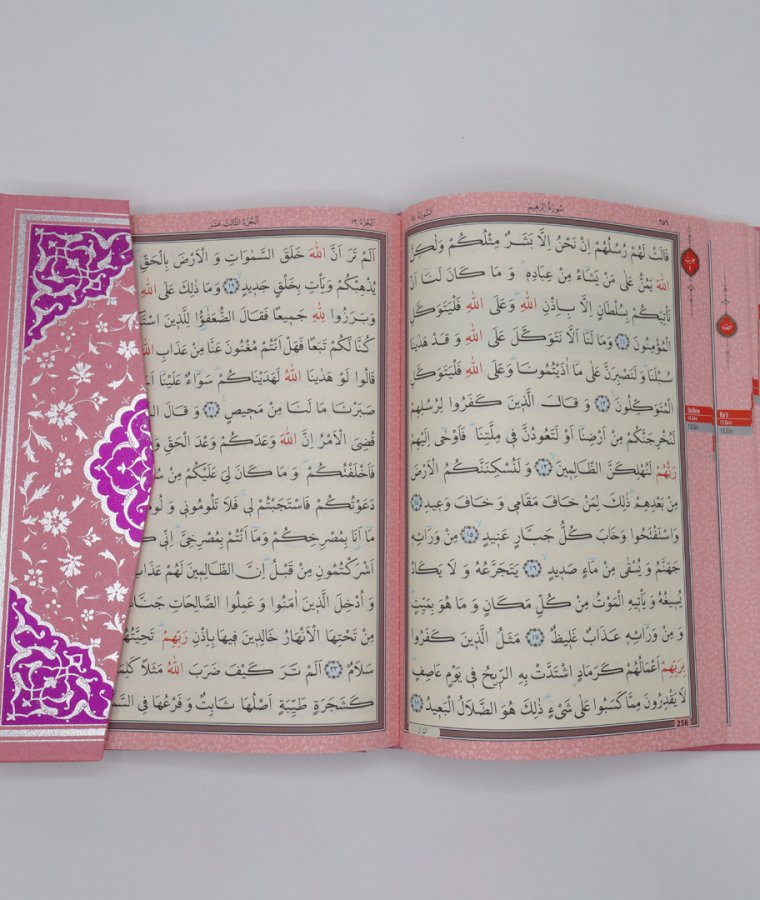 ٢٥٦ سُورَةُ اِبْرٰهِيمَ السُّورَةُ ١٤
قَالَتْ لَهُمْ رُسُلُهُمْ اِنْ نَحْنُ اِلَّا بَشَرٌ مِثْلُكُمْ وَلٰكِنَّ
اللّٰهَ يَمُنُّ عَلٰى مَنْ يَشَٓاءُ مِنْ عِبَادِهٖۜ وَمَا كَانَ لَنَٓا اَنْ
نَأْتِيَكُمْ بِسُلْطَانٍ اِلَّا بِاِذْنِ اللّٰهِۜ وَعَلَى اللّٰهِ فَلْيَتَوَكَّلِ
الْمُؤْمِنُونَ ﴿١١﴾ وَمَا لَنَٓا اَلَّا نَتَوَكَّلَ عَلَى اللّٰهِ وَقَدْ هَدٰينَا
سُبُلَنَاۜ وَلَنَصْبِرَنَّ عَلٰى مَٓا اٰذَيْتُمُونَاۜ وَعَلَى اللّٰهِ فَلْيَتَوَكَّلِ
الْمُتَوَكِّلُونَ ﴿١٢﴾ وَقَالَ الَّذٖينَ كَفَرُوا لِرُسُلِهِمْ
لَنُخْرِجَنَّكُمْ مِنْ اَرْضِنَٓا اَوْ لَتَعُودُنَّ فٖي مِلَّتِنَاۜ فَاَوْحٰٓى اِلَيْهِمْ
رَبُّهُمْ لَنُهْلِكَنَّ الظَّالِمٖينَ ﴿١٣﴾ وَلَنُسْكِنَنَّكُمُ الْاَرْضَ
مِنْ بَعْدِهِمْۜ ذٰلِكَ لِمَنْ خَافَ مَقَامٖي وَخَافَ وَعٖيدِ ﴿١٤﴾
وَاسْتَفْتَحُوا وَخَابَ كُلُّ جَبَّارٍ عَنٖيدٍ ﴿١٥﴾ مِنْ وَرَٓائِهٖ
جَهَنَّمُ وَيُسْقٰى مِنْ مَٓاءٍ صَدٖيدٍ ﴿١٦﴾ يَتَجَرَّعُهُ وَلَا يَكَادُ
يُسٖيغُهُ وَيَأْتٖيهِ الْمَوْتُ مِنْ كُلِّ مَكَانٍ وَمَا هُوَ بِمَيِّتٍۜ
وَمِنْ وَرَٓائِهٖ عَذَابٌ غَلٖيظٌ ﴿١٧﴾ مَثَلُ الَّذٖينَ كَفَرُوا
بِرَبِّهِمْ اَعْمَالُهُمْ كَرَمَادٍۨ اشْتَدَّتْ بِهِ الرّٖيحُ فٖي يَوْمٍ عَاصِفٍۜ
لَا يَقْدِرُونَ مِمَّا كَسَبُوا عَلٰى شَيْءٍۜ ذٰلِكَ هُوَ الضَّلَالُ الْبَعٖيدُ ﴿١٨﴾
256
اَلْجُزْءُ ١٣ اَلْجُزْءُ الثَّالِثَ عَشَرَ
اَلَمْ تَرَ اَنَّ اللّٰهَ خَلَقَ السَّمٰوَاتِ وَالْاَرْضَ بِالْحَقِّ
يُذْهِبْكُمْ وَيَأْتِ بِخَلْقٍ جَدٖيدٍ ﴿١٩﴾ وَمَا ذٰلِكَ عَلَى اللّٰهِ
وَبَرَزُوا لِلّٰهِ جَمٖيعًا فَقَالَ الضُّعَفٰٓؤُا لِلَّذٖينَ
كُنَّا لَكُمْ تَبَعًا فَهَلْ اَنْتُمْ مُغْنُونَ عَنَّا مِنْ عَذَابِ
قَالُوا لَوْ هَدٰينَا اللّٰهُ لَهَدَيْنَاكُمْۜ سَوَٓاءٌ عَلَيْنَٓا
صَبَرْنَا مَا لَنَا مِنْ مَحٖيصٍ ﴿٢١﴾ وَقَالَ
قُضِيَ الْاَمْرُ اِنَّ اللّٰهَ وَعَدَكُمْ وَعْدَ الْحَقِّ
فَاَخْلَفْتُكُمْۜ وَمَا كَانَ لِيَ عَلَيْكُمْ مِنْ
دَعَوْتُكُمْ فَاسْتَجَبْتُمْ لٖيۚ فَلَا تَلُومُونٖي
مَٓا اَنَا۬ بِمُصْرِخِكُمْ وَمَٓا اَنْتُمْ بِمُصْرِخِيَّۜ اِنّٖي
اَشْرَكْتُمُونِ مِنْ قَبْلُۜ اِنَّ الظَّالِمٖينَ لَهُمْ عَذَابٌ
وَاُدْخِلَ الَّذٖينَ اٰمَنُوا وَعَمِلُوا الصَّالِحَاتِ
مِنْ تَحْتِهَا الْاَنْهَارُ خَالِدٖينَ فٖيهَا بِاِذْنِ رَبِّهِمْۜ
سَلَامٌ ﴿٢٣﴾ اَلَمْ تَرَ كَيْفَ ضَرَبَ اللّٰهُ مَثَلًا
كَشَجَرَةٍ طَيِّبَةٍ اَصْلُهَا ثَابِتٌ وَفَرْعُهَا فِي